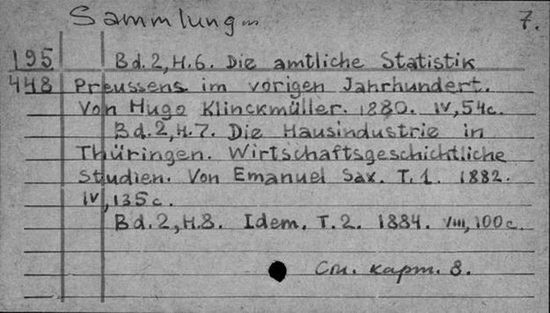 Sammlung... 7.
195 Bd. 2, H. 6. Die amtliche Statistik
448 Preussens im vorigen Jahrhundert.
Von Hugo Klinckmüller. 1880. IV, 54 c.
Bd. 2, H. 7. Die Hausindustrie in
Thüringen. Wirtschaftsgeschichtliche
Studien. Von Emanuel Sax. T. 1. 1882.
IV, 135 c.
Bd. 2, H. 8. Idem. T. 2. 1884. VIII, 100 c.
См. карт. 8.